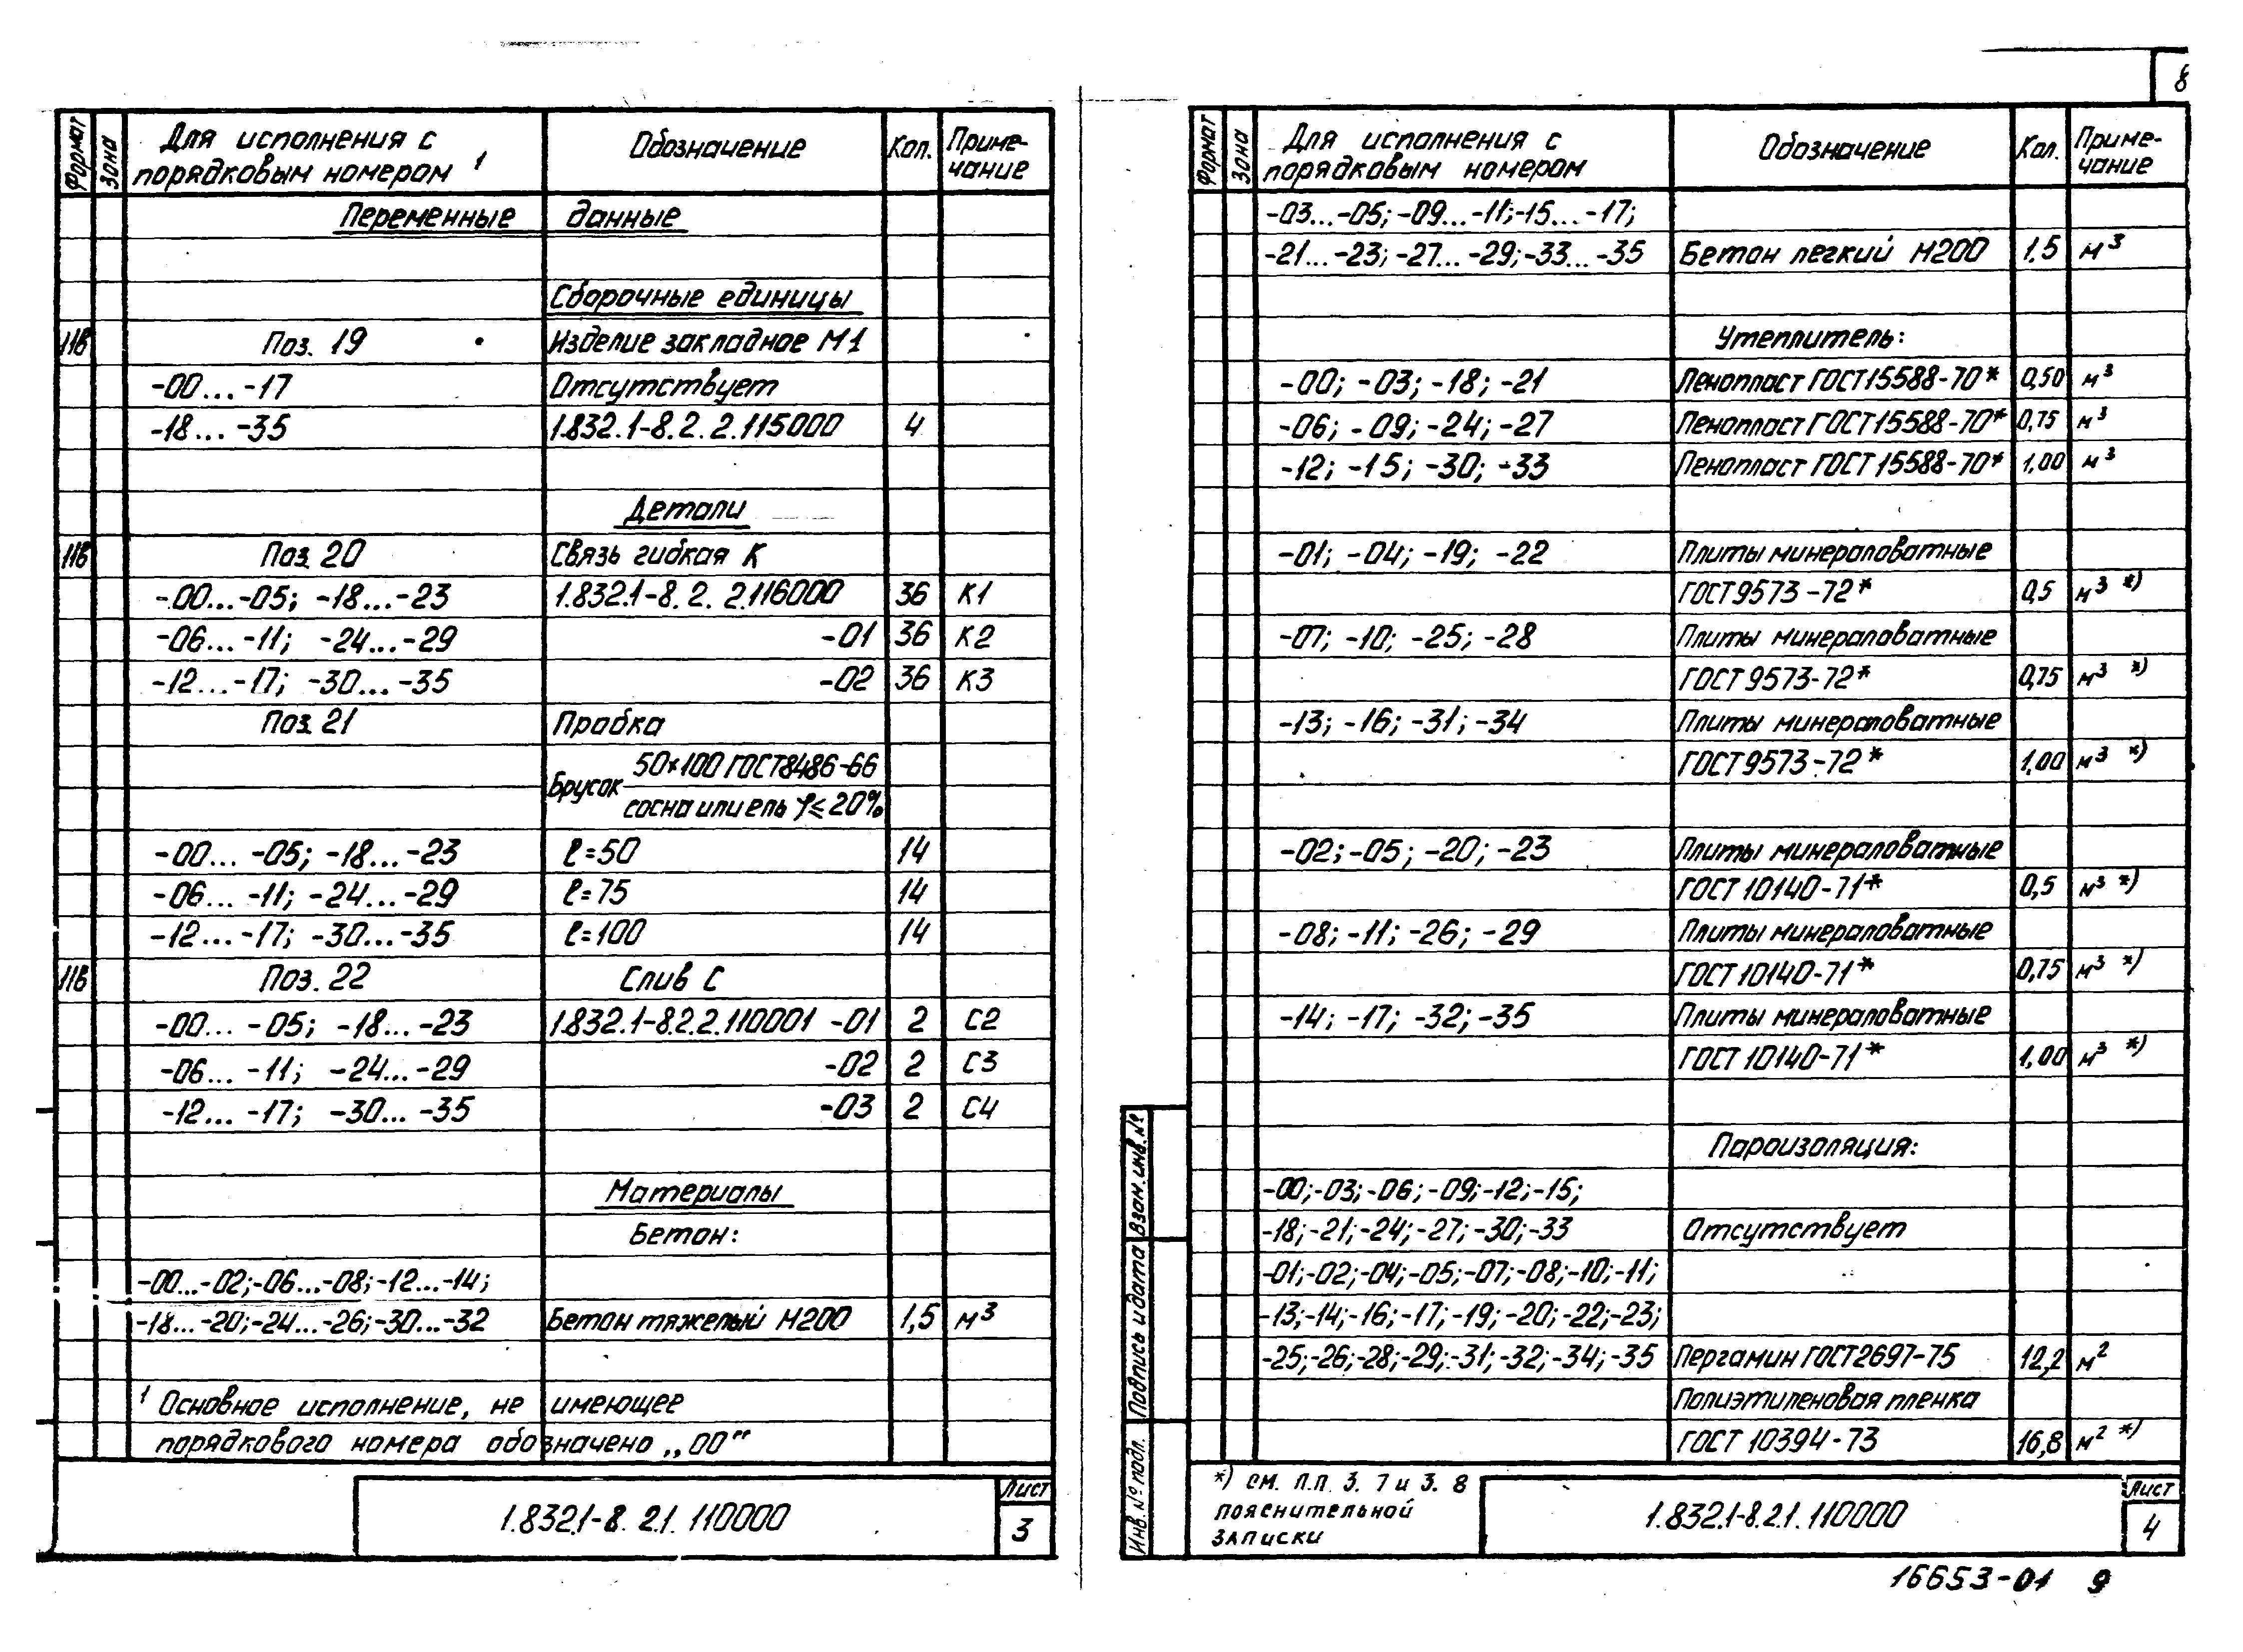 8
Формат
Зона
Для исполнения с порядковым номером 1
Обозначение
Кол.
Примечание
Переменные данные
Сборочные единицы
11в Поз. 19 Изделие закладное М1
-00...-17 Отсутствует
-18...-35 1.832.1-8.2.2.115000 4
Детали
11в Поз. 20 Связь гибкая К
-00...-05; -18...-23 1.832.1-8.2.2.116000 36 К1
-06...-11; -24...-29 -01 36 К2
-12...-17; -30...-35 -02 36 К3
Поз. 21 Пробка
Брусок 50×100 ГОСТ 8486-66
сосна или ель φ≤20%
-00...-05; -18...-23 ℓ=50 14
-06...-11; -24...-29 ℓ=75 14
-12...-17; -30...-35 ℓ=100 14
11в Поз. 22 Слив С
-00...-05; -18...-23 1.832.1-8.2.2.110001 -01 2 С2
-06...-11; -24...-29 -02 2 С3
-12...-17; -30...-35 -03 2 С4
Материалы
Бетон:
-00...-02; -06...-08; -12...-14;
-18...-20; -24...-26; -30...-32 Бетон тяжелый М200 1,5 м³
1 Основное исполнение, не имеющее
порядкового номера обозначено „00"
1.832.1-8.2.1.110000
Лист
3
Формат
Зона
Для исполнения с порядковым номером
Обозначение
Кол.
Примечание
-03...-05; -09...-11; -15...-17;
-21...-23; -27...-29; -33...-35 Бетон легкий М200 1.5 м³
Утеплитель:
-00; -03; -18; -21 Пенопласт ГОСТ 15588-70* 0,50 м³
-06; -09; -24; -27 Пенопласт ГОСТ 15588-70* 0,75 м³
-12; -15; -30; -33 Пенопласт ГОСТ 15588-70* 1,00 м³
-01; -04; -19; -22 Плиты минераловатные
ГОСТ 9573-72* 0,5 м³ *)
-07; -10; -25; -28 Плиты минераловатные
ГОСТ 9573-72* 0,75 м³ *)
-13; -16; -31; -34 Плиты минераловатные
ГОСТ 9573-72* 1,00 м³ *)
-02; -05; -20; -23 Плиты минераловатные
ГОСТ 10140-71* 0,5 м³ *)
-08; -11; -26; -29 Плиты минераловатные
ГОСТ 10140-71* 0,75 м³ *)
-14; -17; -32; -35 Плиты минераловатные
ГОСТ 10140-71* 1,00 м³ *)
Пароизоляция:
-00; -03; -06; -09; -12; -15;
-18; -21; -24; -27; -30; -33 Отсутствует
-01; -02; -04; -05; -07; -08; -10; -11;
-13; -14; -16; -17; -19; -20; -22; -23;
-25; -26; -28; -29; -31; -32; -34; -35 Пергамин ГОСТ 2697-75 12,2 м²
Полиэтиленовая пленка
ГОСТ 10394-73 16,8 м² *)
*) см. п.п. 3.7 и 3.8
пояснительной
записки
1.832.1-8.2.1.110000
Лист
4
Взам. инв. №
Подпись и дата
Инв. № подл.
16653-01 9